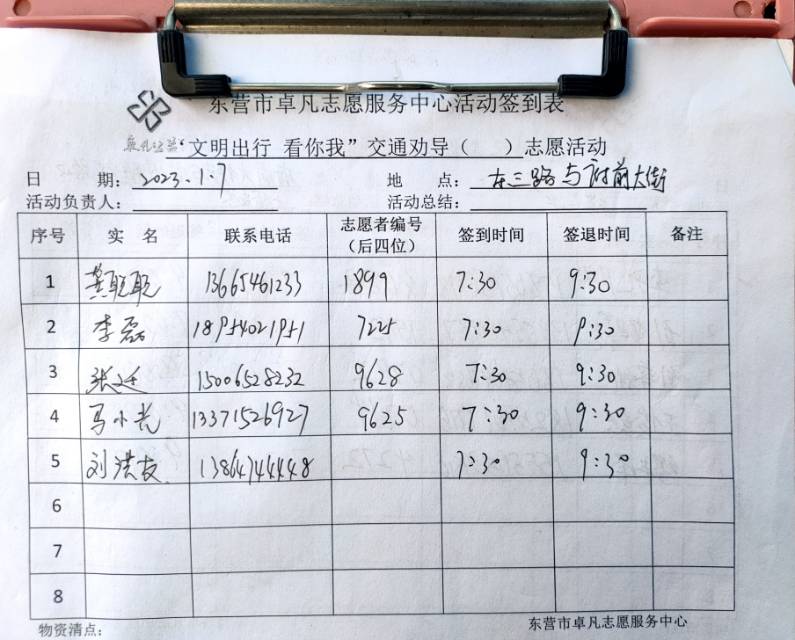 东营市卓凡志愿服务中心活动签到表
“文明出行 看你我”交通劝导（ ）志愿活动
日 期：2023.1.7 地 点：东三路与府前大街
活动负责人： 活动总结：
序号 实 名 联系电话 志愿者编号（后四位） 签到时间 签退时间 备注
1 13665461233 1899 7:30 9:30
2 李磊 18954021951 7225 7:30 9:30
3 张廷 15006528232 9628 7:30 9:30
4 马小光 13371526927 9625 7:30 9:30
5 刘洪友 13864744448 7:30 9:30
6
7
8
物资清点： 东营市卓凡志愿服务中心